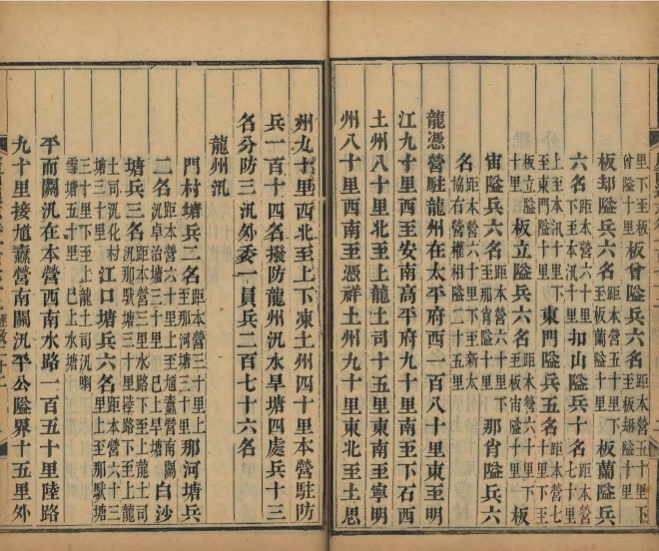 里下至板曾隘十里板曾隘兵六名距本營五十里下至板細隘十里
板却隘兵六名距本營五十里下至板蘭隘十里板蘭隘兵
六名距本營六十里下至本汛十里扣山隘兵十名距本營七十里
上至本汛十里下至東門隘十里東門隘兵五名距本營十里下至
板立隘十里板立隘兵六名距本營六十里下至板宙隘十里板
宙隘兵六名距本營六十里下至那肖隘十里那肖隘兵六
名距本營六十里下至新太協右營權相隘二十五里
龍憑營駐龍州在太平府西一百八十里東至明
江九十里西至安南高平府九十里南至下石西
土州八十里北至上龍土司十五里東南至寧明
州八十里西南至憑祥土州九十里東北至土思
州九十里西北至上下凍土州四十里本營駐防
兵一百十四名撥防龍州汛水旱塘四處兵十三
名分防三汛外委一員兵二百七十六名
龍州汛
門村塘兵二名距本營三十里上至那河塘三十里那河塘兵
二名距本營六十里上至馗纛營南關汛卓治塘三十里已上旱塘白沙
塘兵三名距本營三里水路下至上龍土司汛那馱塘三十里陸路下至上龍
土司汛化村塘三十里江口塘兵六名距本營六十三里上至那馱塘
三十里下至上龍土司汛喇雪塘五十里已上水塘
平而關汛在本營西南水路一百五十里陸路
九十里接馗纛營南關汛平公隘界十五里外